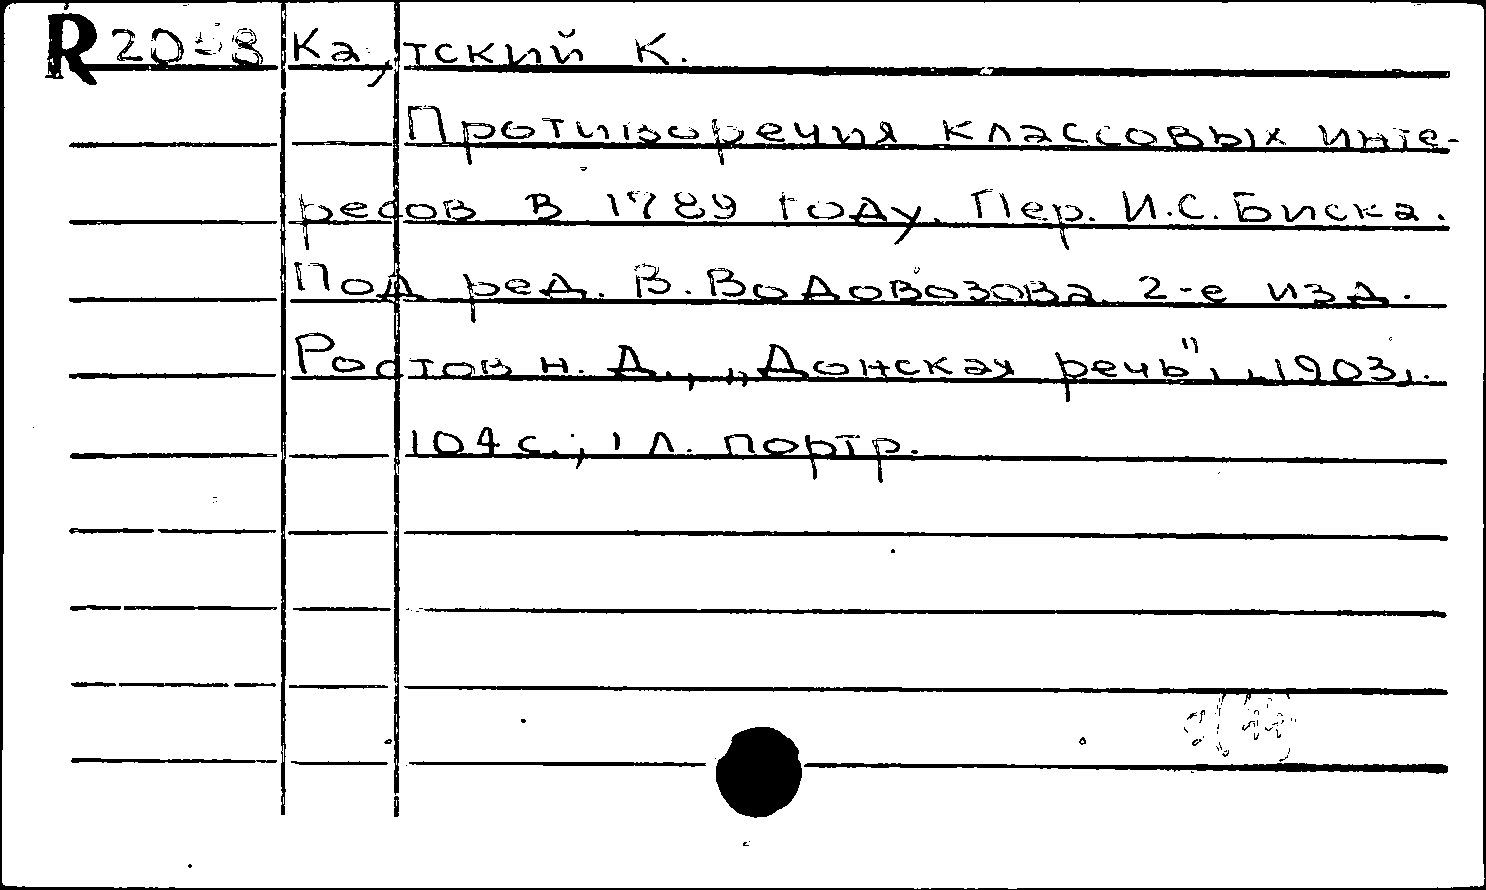 R Каутский К.
Противоречия классовых инте-
ресов в 1789 году. Пер. И.С. Биска.
Под ред. В. Водовозова. 2-е изд.
Ростов н. Д., „Донская речь", 1903.
104 с.; 1 л. портр.